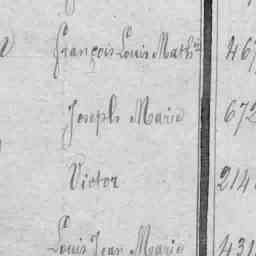 François Louis Math.in 467
Joseph Marie 672
Victor 214
Louis Jean Marie 431